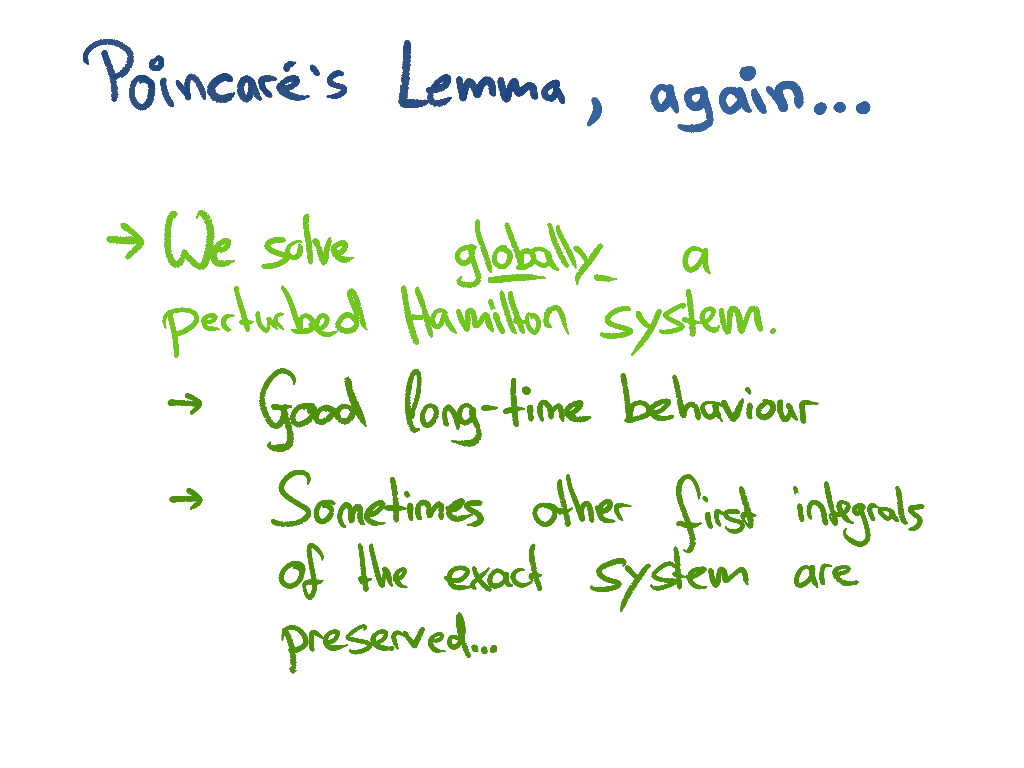 Poincaré's Lemma, again...
→ We solve globally a
perturbed Hamilton system.
→ Good long-time behaviour
→ Sometimes other first integrals
of the exact system are
preserved...